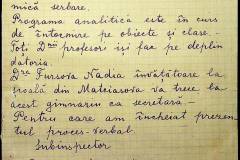 mică serbare.
Programa analitică este în curs
de întocmire pe obiecte și clase. -
Toți Dnii profesori își fac pe deplin
datoria.
Dra Fursova Nadia învățătoare la
școală din Mateiasova va trece la
acest gimnaziu ca secretară. -
Pentru care am încheiat prezen-
tul proces-verbal.
Subinspector